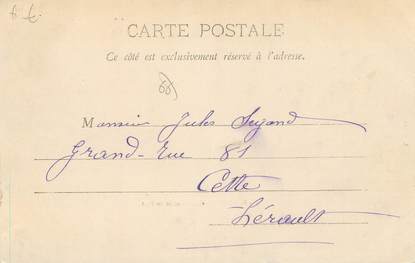 CARTE POSTALE
Ce côté est exclusivement réservé à l'adresse.
Monsieur Jules
Grand-rue 81
Cette
Hérault